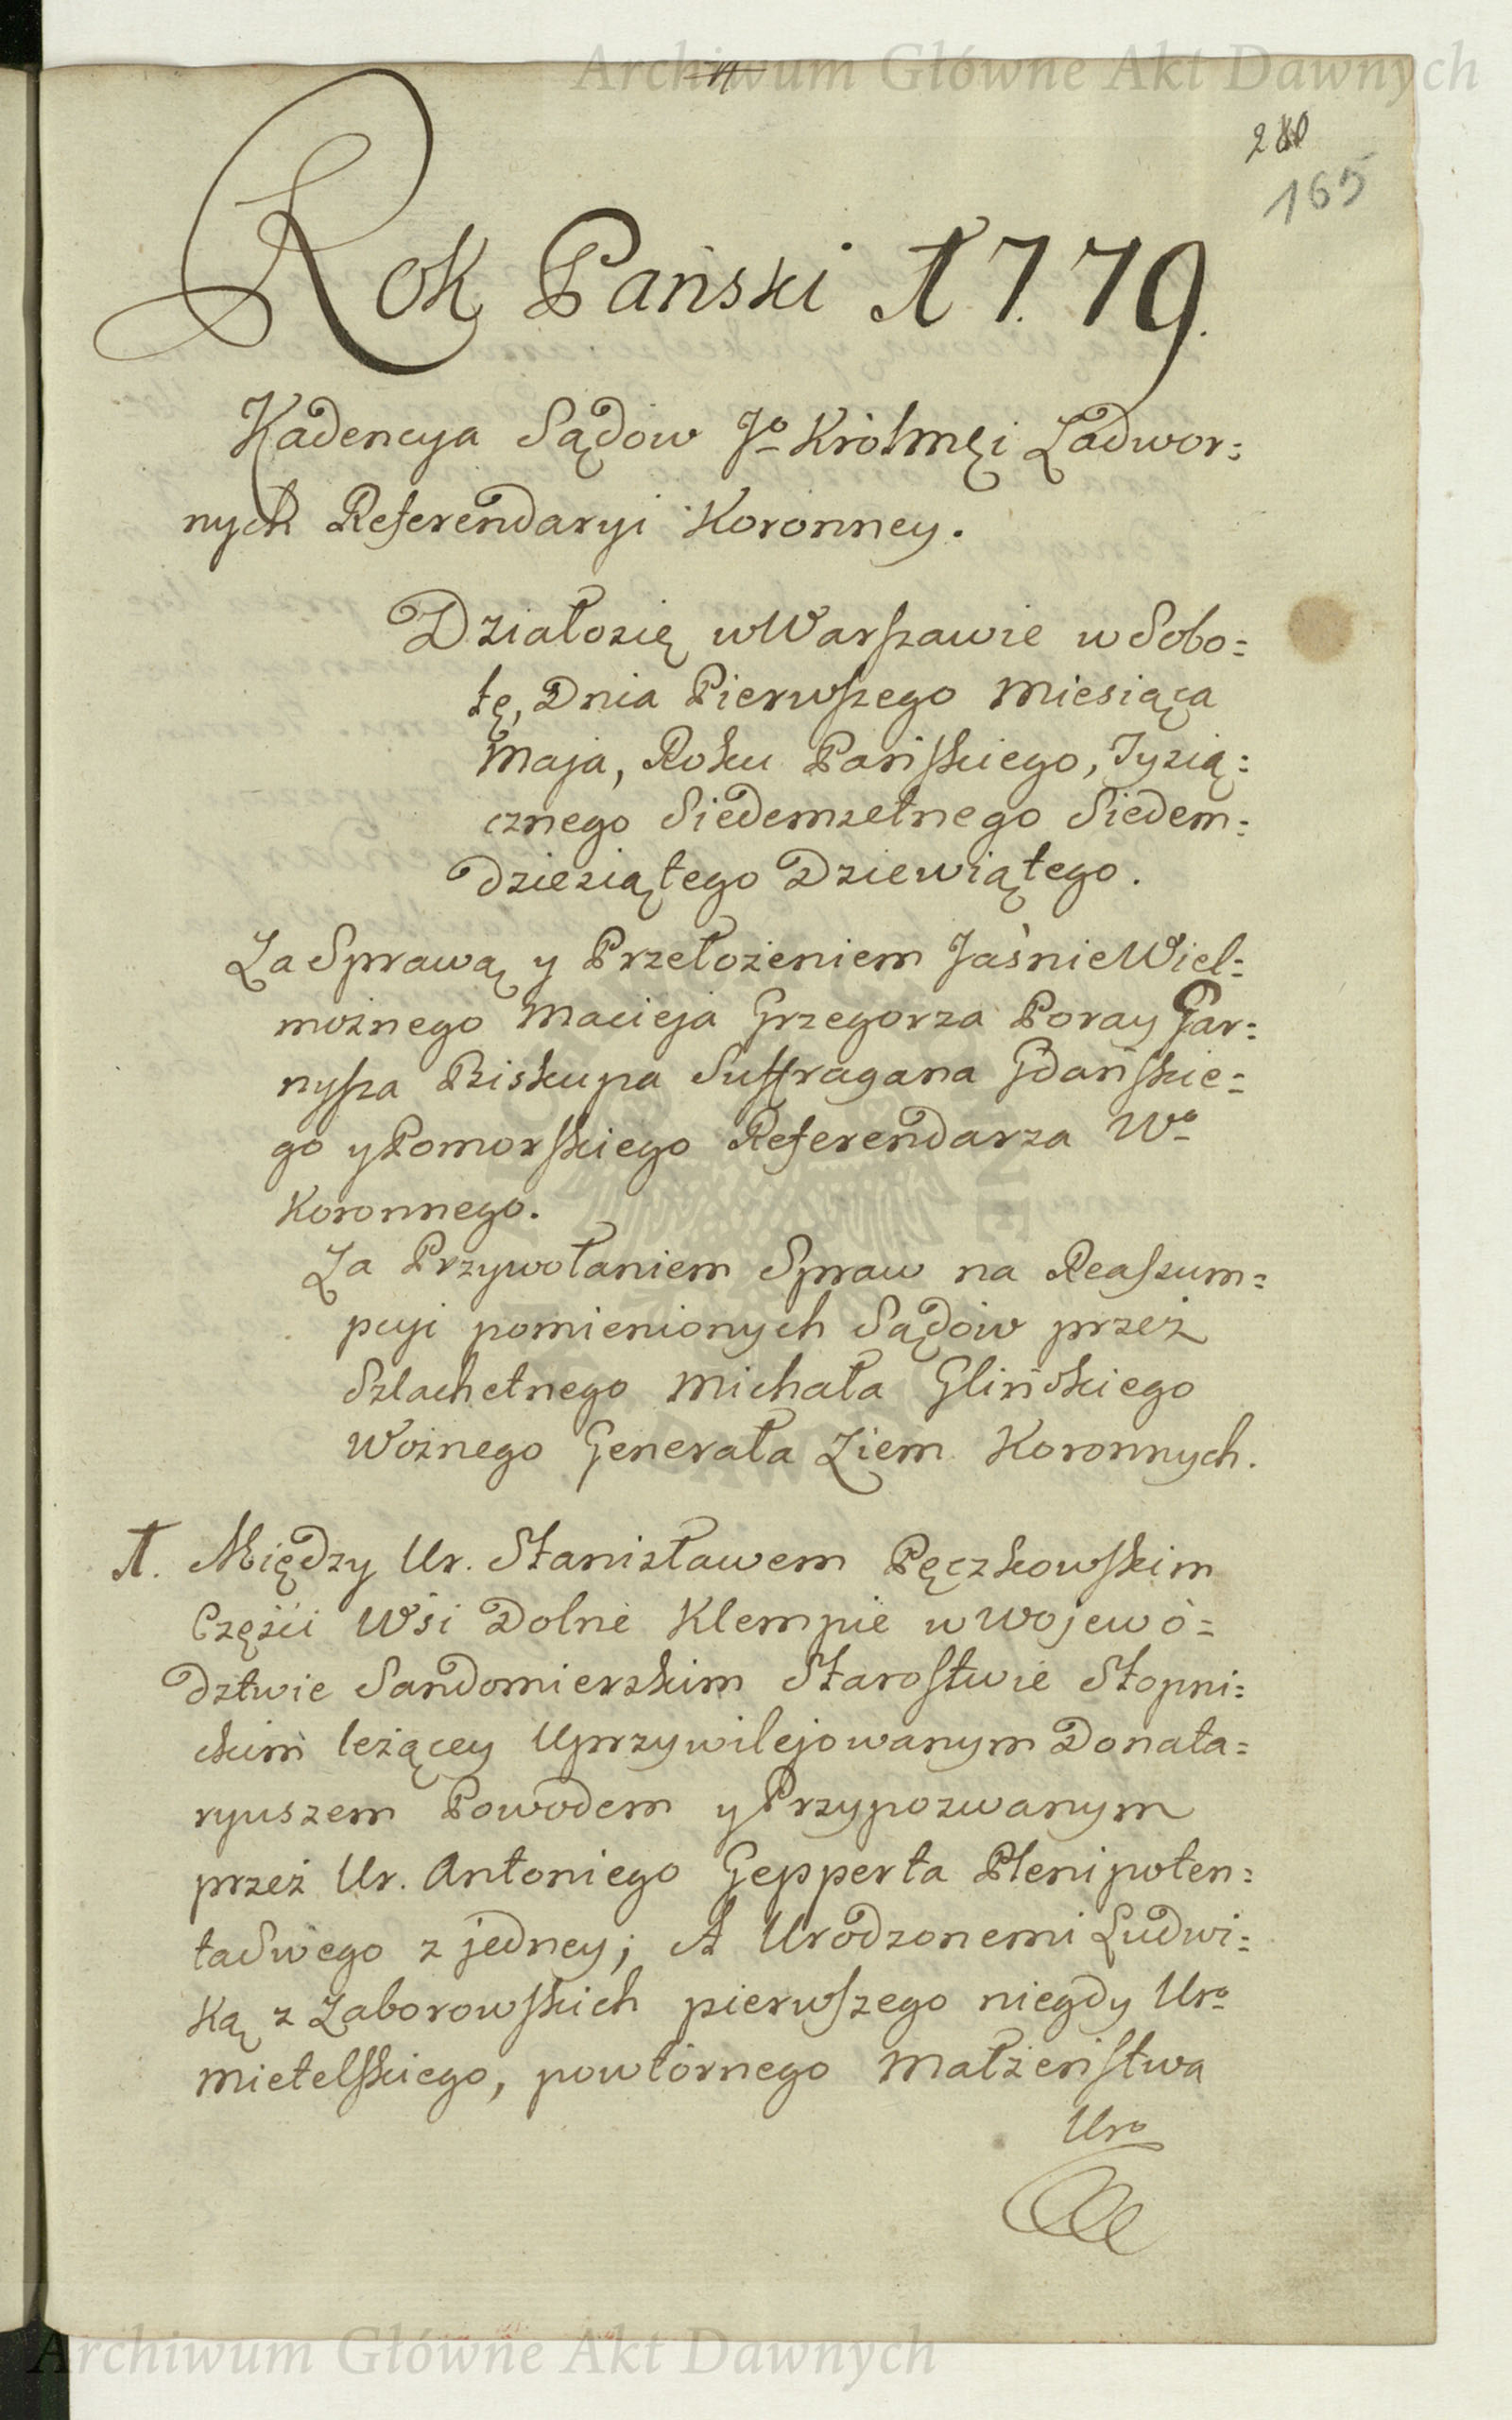 Archiwum Główne Akt Dawnych
280
165
Rok Pański 1779.
Kadencya Sądow Jº Królmęi Zadwor:
nych Referendaryi Koronney.
Działosię wWarszawie w Sobo=
tę, Dnia Pierwszego Miesiąca
Maja, Roku Pańskiego, Tysią:
cznego Siedemsetnego Siedem:
dziesiątego Dziewiątego.
Za Sprawą y Przełożeniem JaśnieWiel:
możnego Macieja Grzegorza Poray Gar:
nysza Biskupa Suffragana Gdańskie=
go yPomorskiego Referendarza Wº
Koronnego.
Za Przywołaniem Spraw na Reassum=
pcyi pomienionych Sądów przez
Szlachetnego Michała Glińskiego
Woźnego Generała Ziem Koronnych.
1. Między Ur. Stanisławem Pęczkowskim
Części Wsi Dolne Klempie wWojewó=
dztwie Sandomierskim Starostwie Stopni:
ckim leżącey Uprzywilejowanym Donata=
ryuszem Powodem yPrzypozwanym
przez Ur. Antoniego Gepperta Plenipoten:
taSwego z jedney; A Urodzonemi Ludwi:
ką z Zaborowskich pierwszego niegdy Urº
Mietelskiego, powtórnego Małżeństwa
Urº
Archiwum Główne Akt Dawnych